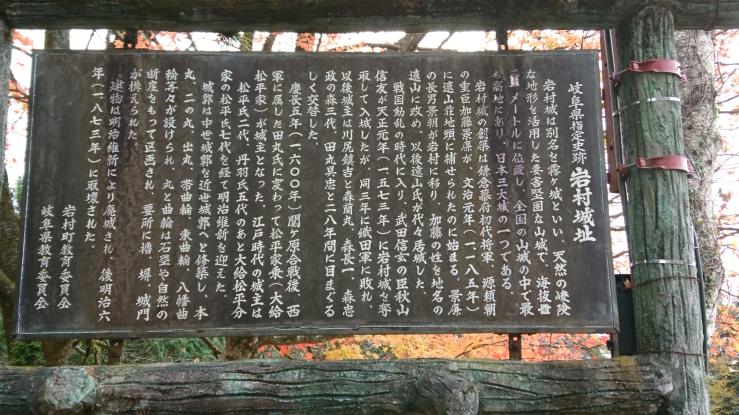 岐阜県指定史跡 岩村城址
岩村城は別名を霧ヶ城といい、天然の峻険
な地形を活用した要害堅固な山城で、海抜
メートルに位置し、全国の山城の中で最
も高地にあり、日本三大城の一つである。
岩村城の創築は鎌倉幕府初代将軍、源頼朝
の重臣加藤景廉が、文治元年(一一八五年)
に遠山荘地頭に補せられたのに始まる。景廉
の長男景朝が岩村に移り、加藤の姓を地名の
遠山に改め、以後遠山氏が代々居城した。
戦国動乱の時代に入り、武田信玄の臣秋山
信友が天正元年(一五七三年)に岩村城を奪
取して入城したが、同三年に織田軍に敗れ、
以後城主は川尻鎮吉と森蘭丸、森長一、森忠
政の森三代、田丸具忠と二八年間に目まぐる
しく交替した。
慶長五年(一六〇〇年)関ヶ原合戦後、西
軍に属した田丸氏に変わって松平家乗(大給
松平家)が城主となった。江戸時代の城主は
松平氏二代、丹羽氏五代のあと大給松平分
家の松平氏七代を経て明治維新を迎えた。
城郭は中世城郭を近世城郭へと修築し、本
丸、二の丸、出丸、帯曲輪、東曲輪、八幡曲
輪等々が設けられ、丸と曲輪は石塁や自然の
断崖をもって区画され、要所に櫓、塀、城門
が構えられた。
建物は明治維新により廃城され、後明治六
年(一八七三年)に取壊された。
岩村町教育委員会
岐阜県教育委員会